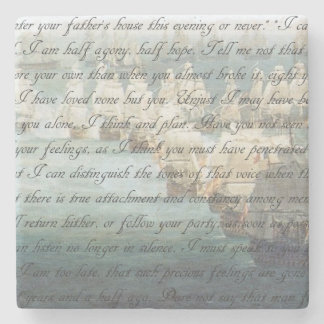 nter your father's house this evening or never." "I ca
I am half agony, half hope. Tell me not that
ore your own than when you almost broke it, eight y
I have loved none but you. Unjust I may have be
you alone, I think and plan. Have you not seen
your feelings, as I think you must have penetrated
t I can distinguish the tones of that voice when th
t there is true attachment and constancy among me
I return hither, or follow your party, as soon as poss
an listen no longer in silence. I must speak to you
I am too late, that such precious feelings are gone
years and a half ago. Dare not say that man f